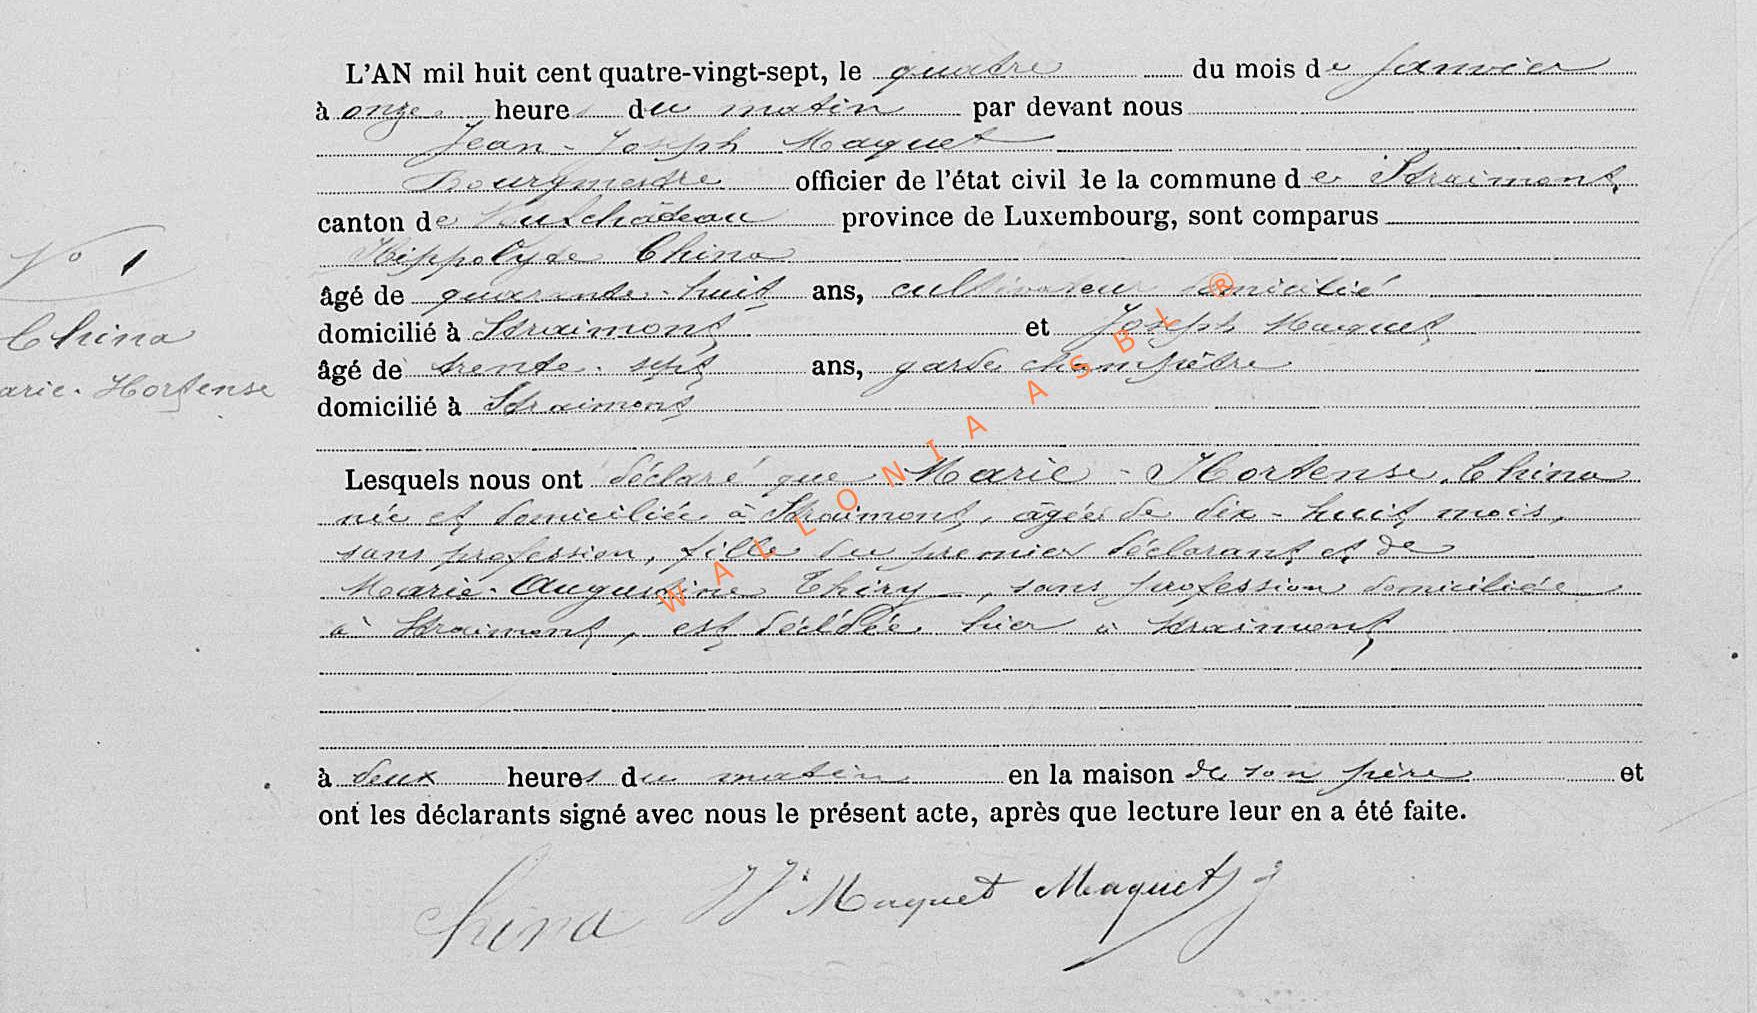 L'AN mil huit cent quatre-vingt-sept, le quatre du mois de Janvier
à onze heures du matin par devant nous
Jean-Joseph Maquet
Bourgmestre officier de l'état civil de la commune de Straimont,
canton de Neufchâteau province de Luxembourg, sont comparus
Hippolyte China
N° 1
âgé de quarante-huit ans, cultivateur domicilié
China
domicilié à Straimont et Joseph Maquet
âgé de trente-sept ans, garde champêtre
arie-Hortense
domicilié à Straimont
Lesquels nous ont déclaré que Marie-Hortense China
née et domiciliée à Straimont, âgée de dix-huit mois,
sans profession, fille du premier déclarant et de
Marie-Augustine Thiry, sans profession domiciliée
à Straimont, est décédée hier à Straimont,
à deux heures du matin en la maison de son père et
ont les déclarants signé avec nous le présent acte, après que lecture leur en a été faite.
China JJh Maquet Maquet J
WALLONIA ASBL ®